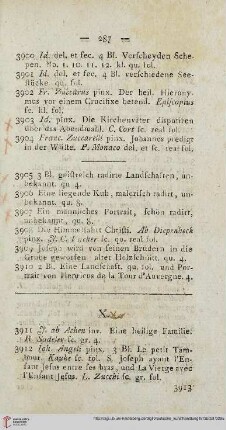 — 287 —
3900 Id. del. et sec. 4 Bl. Verscheyden Sche-
pen. No. 1. 10. 11. 12. kl. qu. fol.
3901 Id. del. et sec. 4 Bl. verschiedene See-
stücke. qu. fol.
3902 Fr. pinx. Der heil. Hierony-
mus vor einem Crucifixe betend. Episcopius
sc. kl. fol.
3903 Id. pinx. Die Kirchenväter disputiren
über das Abendmahl. C. Cort sc. real fol.
3904 Franc. Zuccarelli pinx. Johannes predigt
in der Wüste. P. Monaco del. et sc. real fol.
3905 3 Bl. geistreich radirte Landschaften, un-
bekannt. qu. 4.
3906 Eine liegende Kuh, malerisch radirt, un-
bekannt. qu. 5.
3907 Ein männliches Portrait, schön radirt,
unbekannt. qu.
3908 Die Himmelfahrt Christi. Ab Diepenbeck
pinx. sc. qu. real fol.
3909 Joseph wird von seinen Brüdern in die
Grube geworfen, alter Holzschnitt. qu. 4.
3910 2 Bl. Eine Landschaft. qu. fol. und Por-
trait von Henricus de la Tour d'Auvergne. 4.
X.
3911 J. ab Achen inv. Eine heilige Familie.
R. Sadeler sc. gr. 4.
3912 Joh. Angeli pinx. 3 Bl. Le petit Tam-
bour. sc. fol. S. Joseph ayant l'En-
fant Jesu entre ses bras, und La Vierge avec
l'Enfant Jesus. L. Zucchi sc. gr. fol.
3913